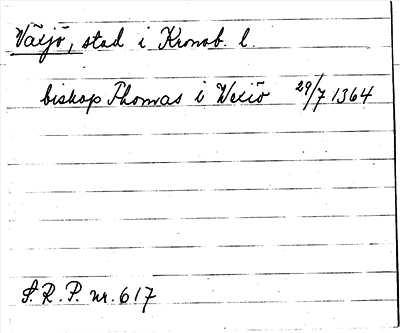 Växjö, stad i Kronob. l.
biskop Thomas i Wexiö 29/7 1364
S. R. P. nr. 617